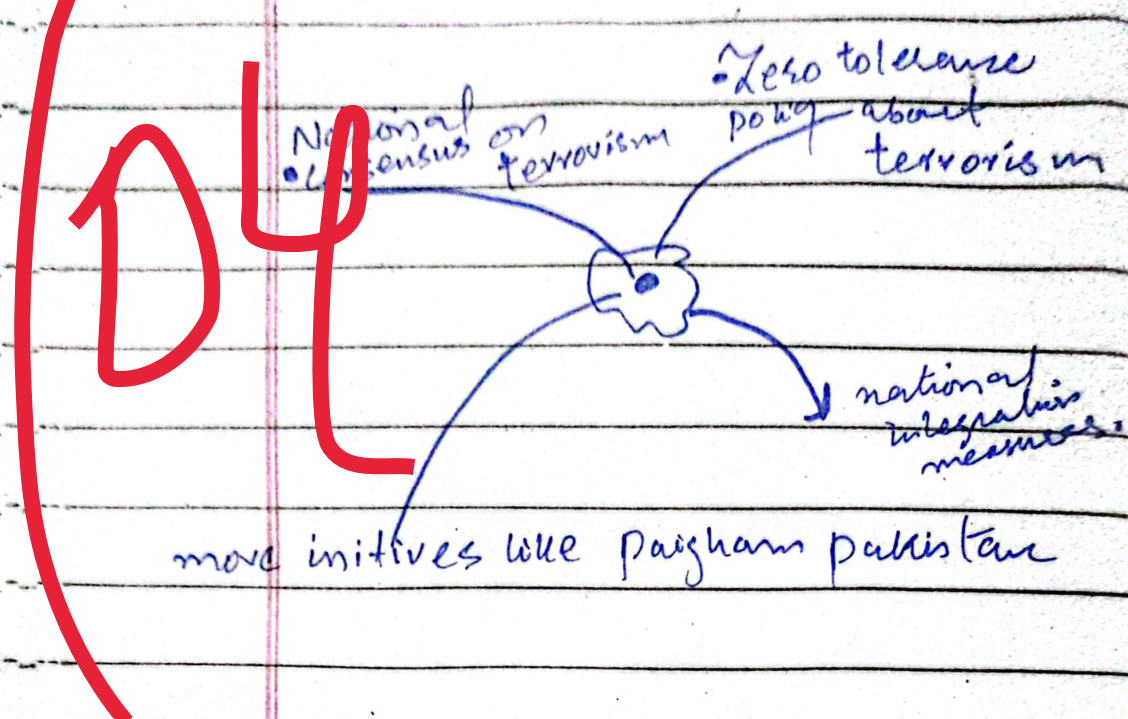 National
• consensus on
terrorism
• Zero tolerance
policy about
terrorism
national
integration
measures.
more initives like paigham pakistan